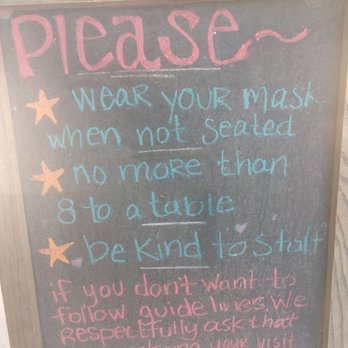 Please~
wear your mask
when not seated
no more than
8 to a table
be Kind to staff
if you don't want to
follow guidelines, We
Respectfully ask that
your visit